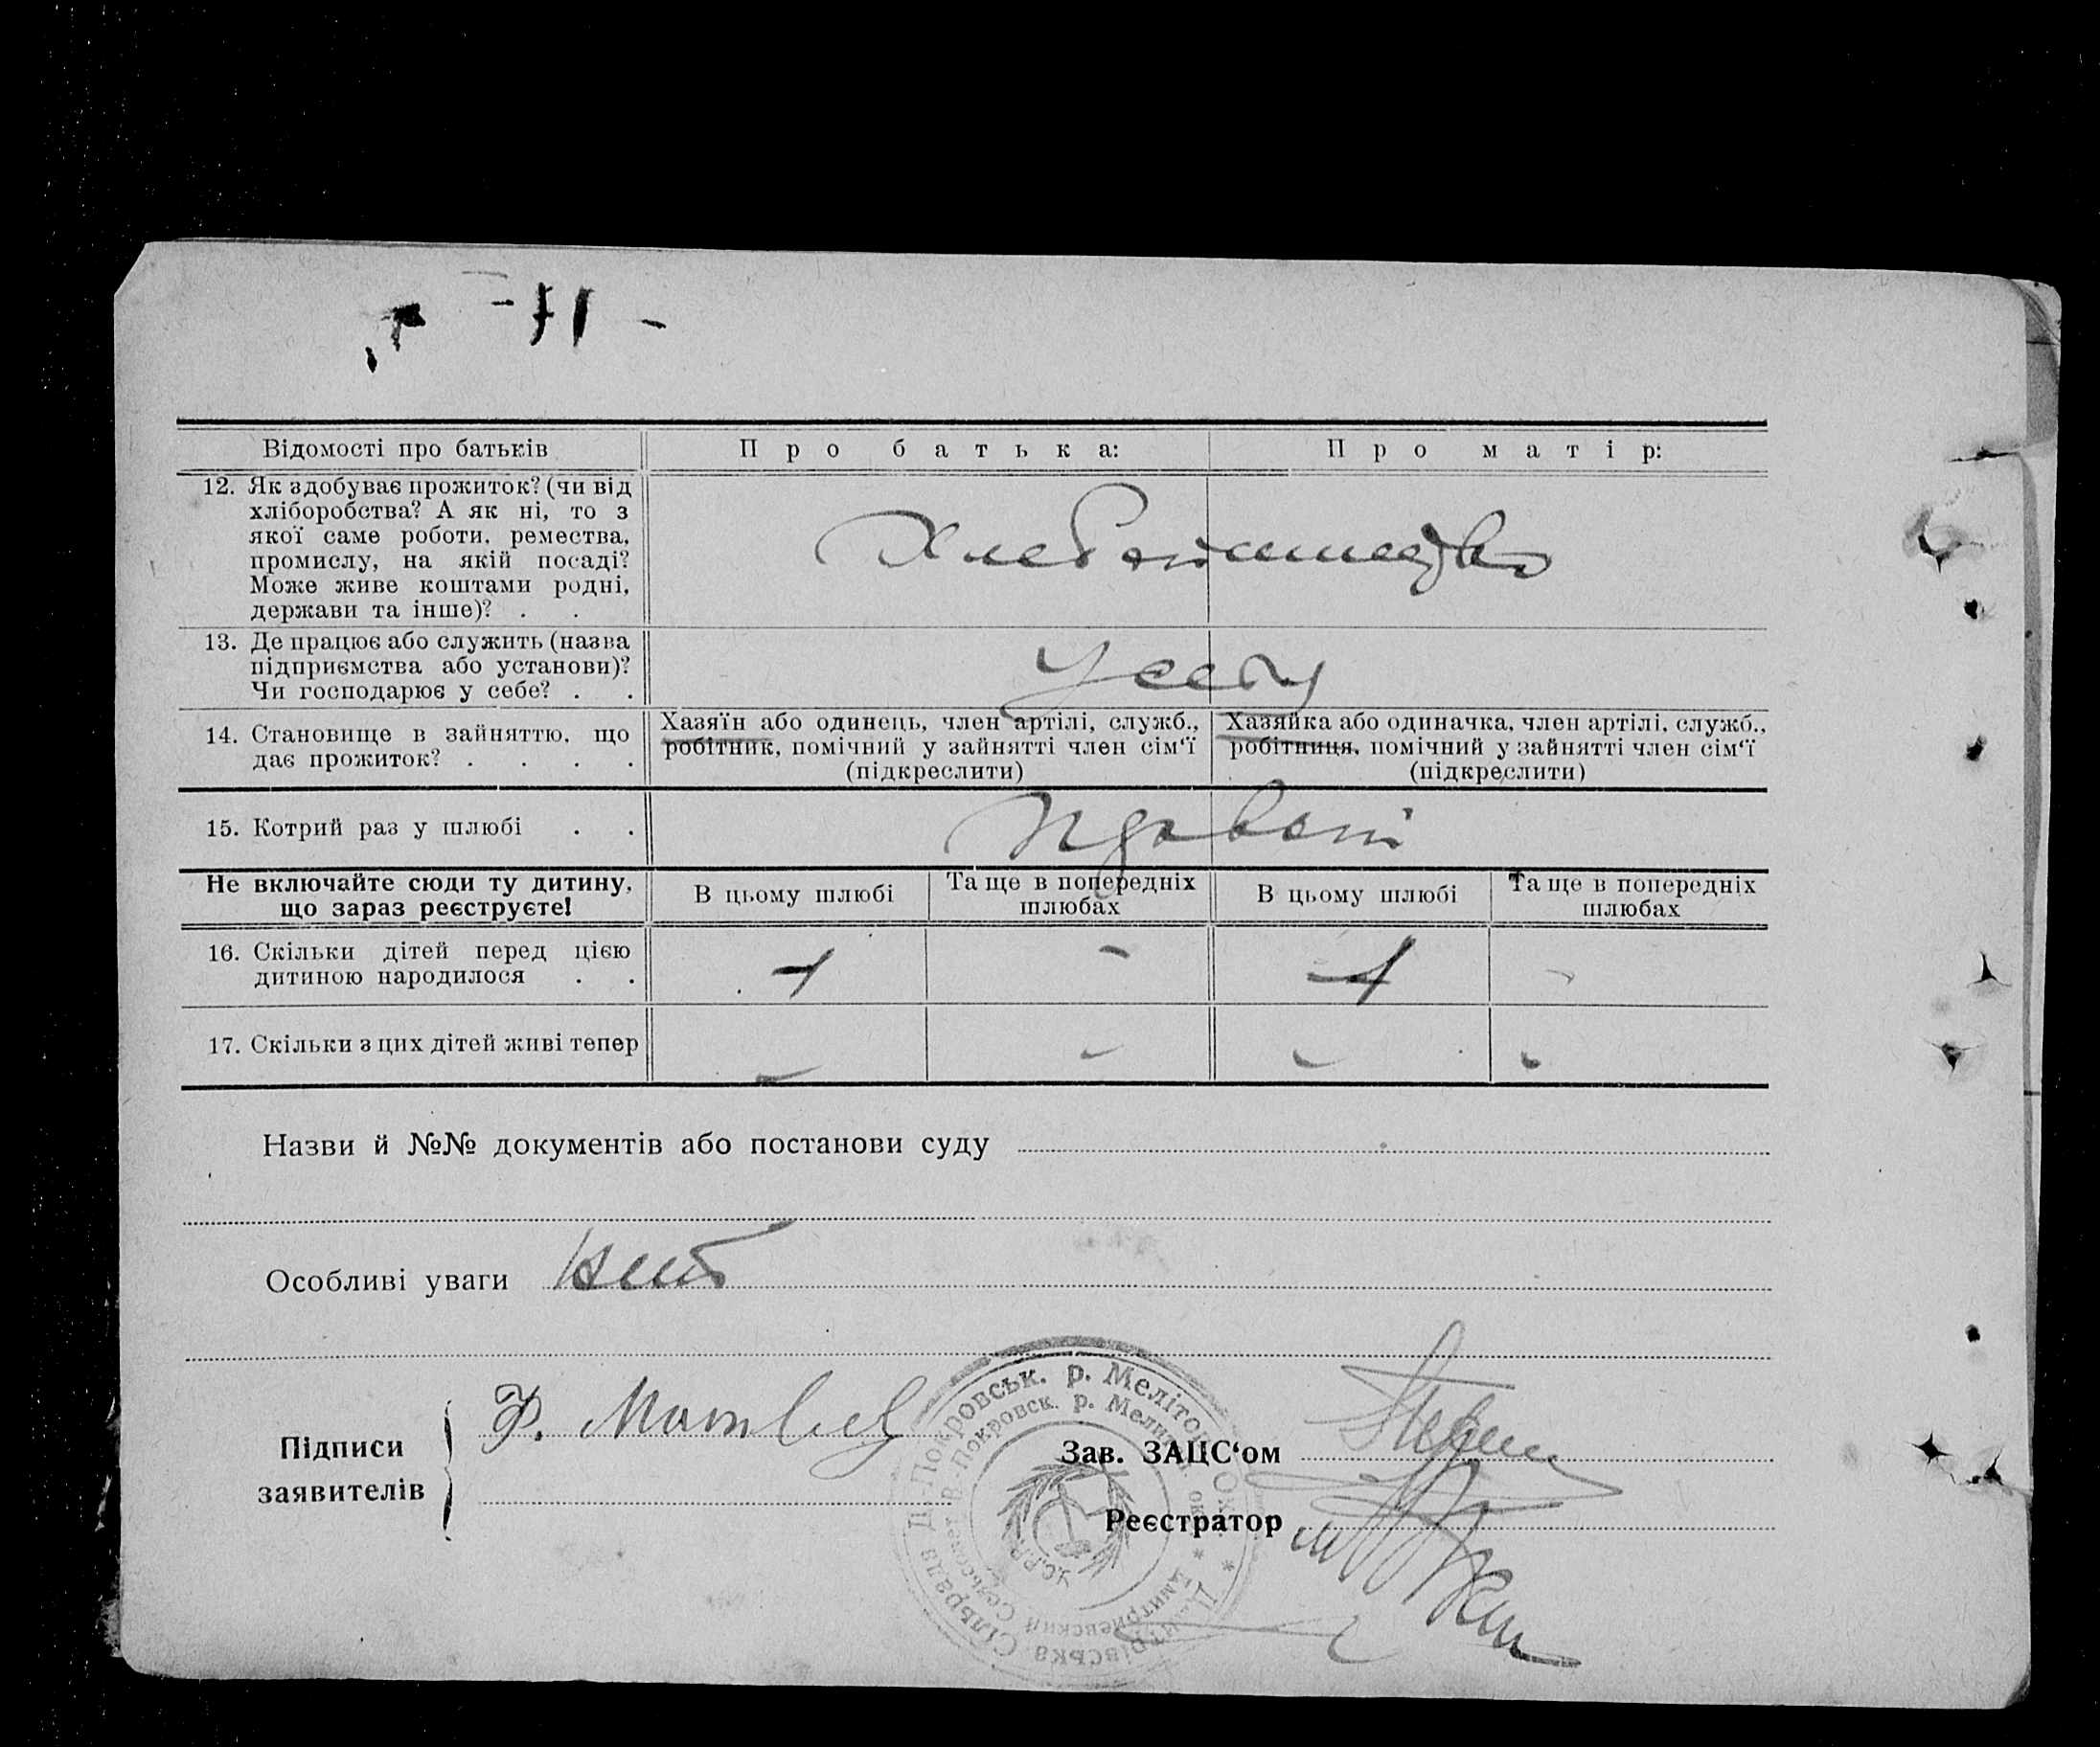 - 71 -
Відомості про батьків Про батька: Про матір:
12. Як здобуває прожиток? (чи від
хліборобства? А як ні, то з
якої саме роботи, ремества,
промислу, на якій посаді?
Може живе коштами родні,
держави та інше)? . .
13. Де працює або служить (назва
підприємства або установи)?
Чи господарює у себе? . .
14. Становище в зайняттю, що
дає прожиток? . . . .
Хазяїн або одинець, член артілі, служб.,
робітник, помічний у зайнятті член сім‘ї
(підкреслити)
Хазяйка або одиначка, член артілі, служб.,
робітниця, помічний у зайнятті член сім‘ї
(підкреслити)
15. Котрий раз у шлюбі . .
Не включайте сюди ту дитину,
що зараз реєструєте!
В цьому шлюбі
Та ще в попередніх
шлюбах
В цьому шлюбі
Та ще в попередніх
шлюбах
16. Скільки дітей перед цією
дитиною народилося . .
- -
17. Скільки з цих дітей живі тепер
- - - -
Назви й №№ документів або постанови суду
Особливі уваги нет
Підписи
заявителів
Ф. Матвеев
Зав. ЗАЦС‘ом
Реєстратор
Д-Покровськ. р. Меліто
Покровск. р. Мелит
Сільрада
Дмитриевский
УСРР